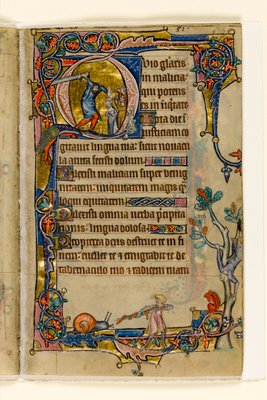 Quid gloriaris
in malicia:
qui potens
es in iniqitate
Tota die in
iusticiam co
gitauit lingua tua: sicut nouacu
la acuta fecisti dolum
Dilexisti maliciam super benig
nitatem: iniquitatem magis q̃
loqui equitatem
Dilexisti omnia uerba p̃cipita
tionis: lingua dolosa
Propterea deus destruet te in fi
nem: euellet te ⁊ emigrabit te de
tabernaculo tuo ⁊ radicem tuam